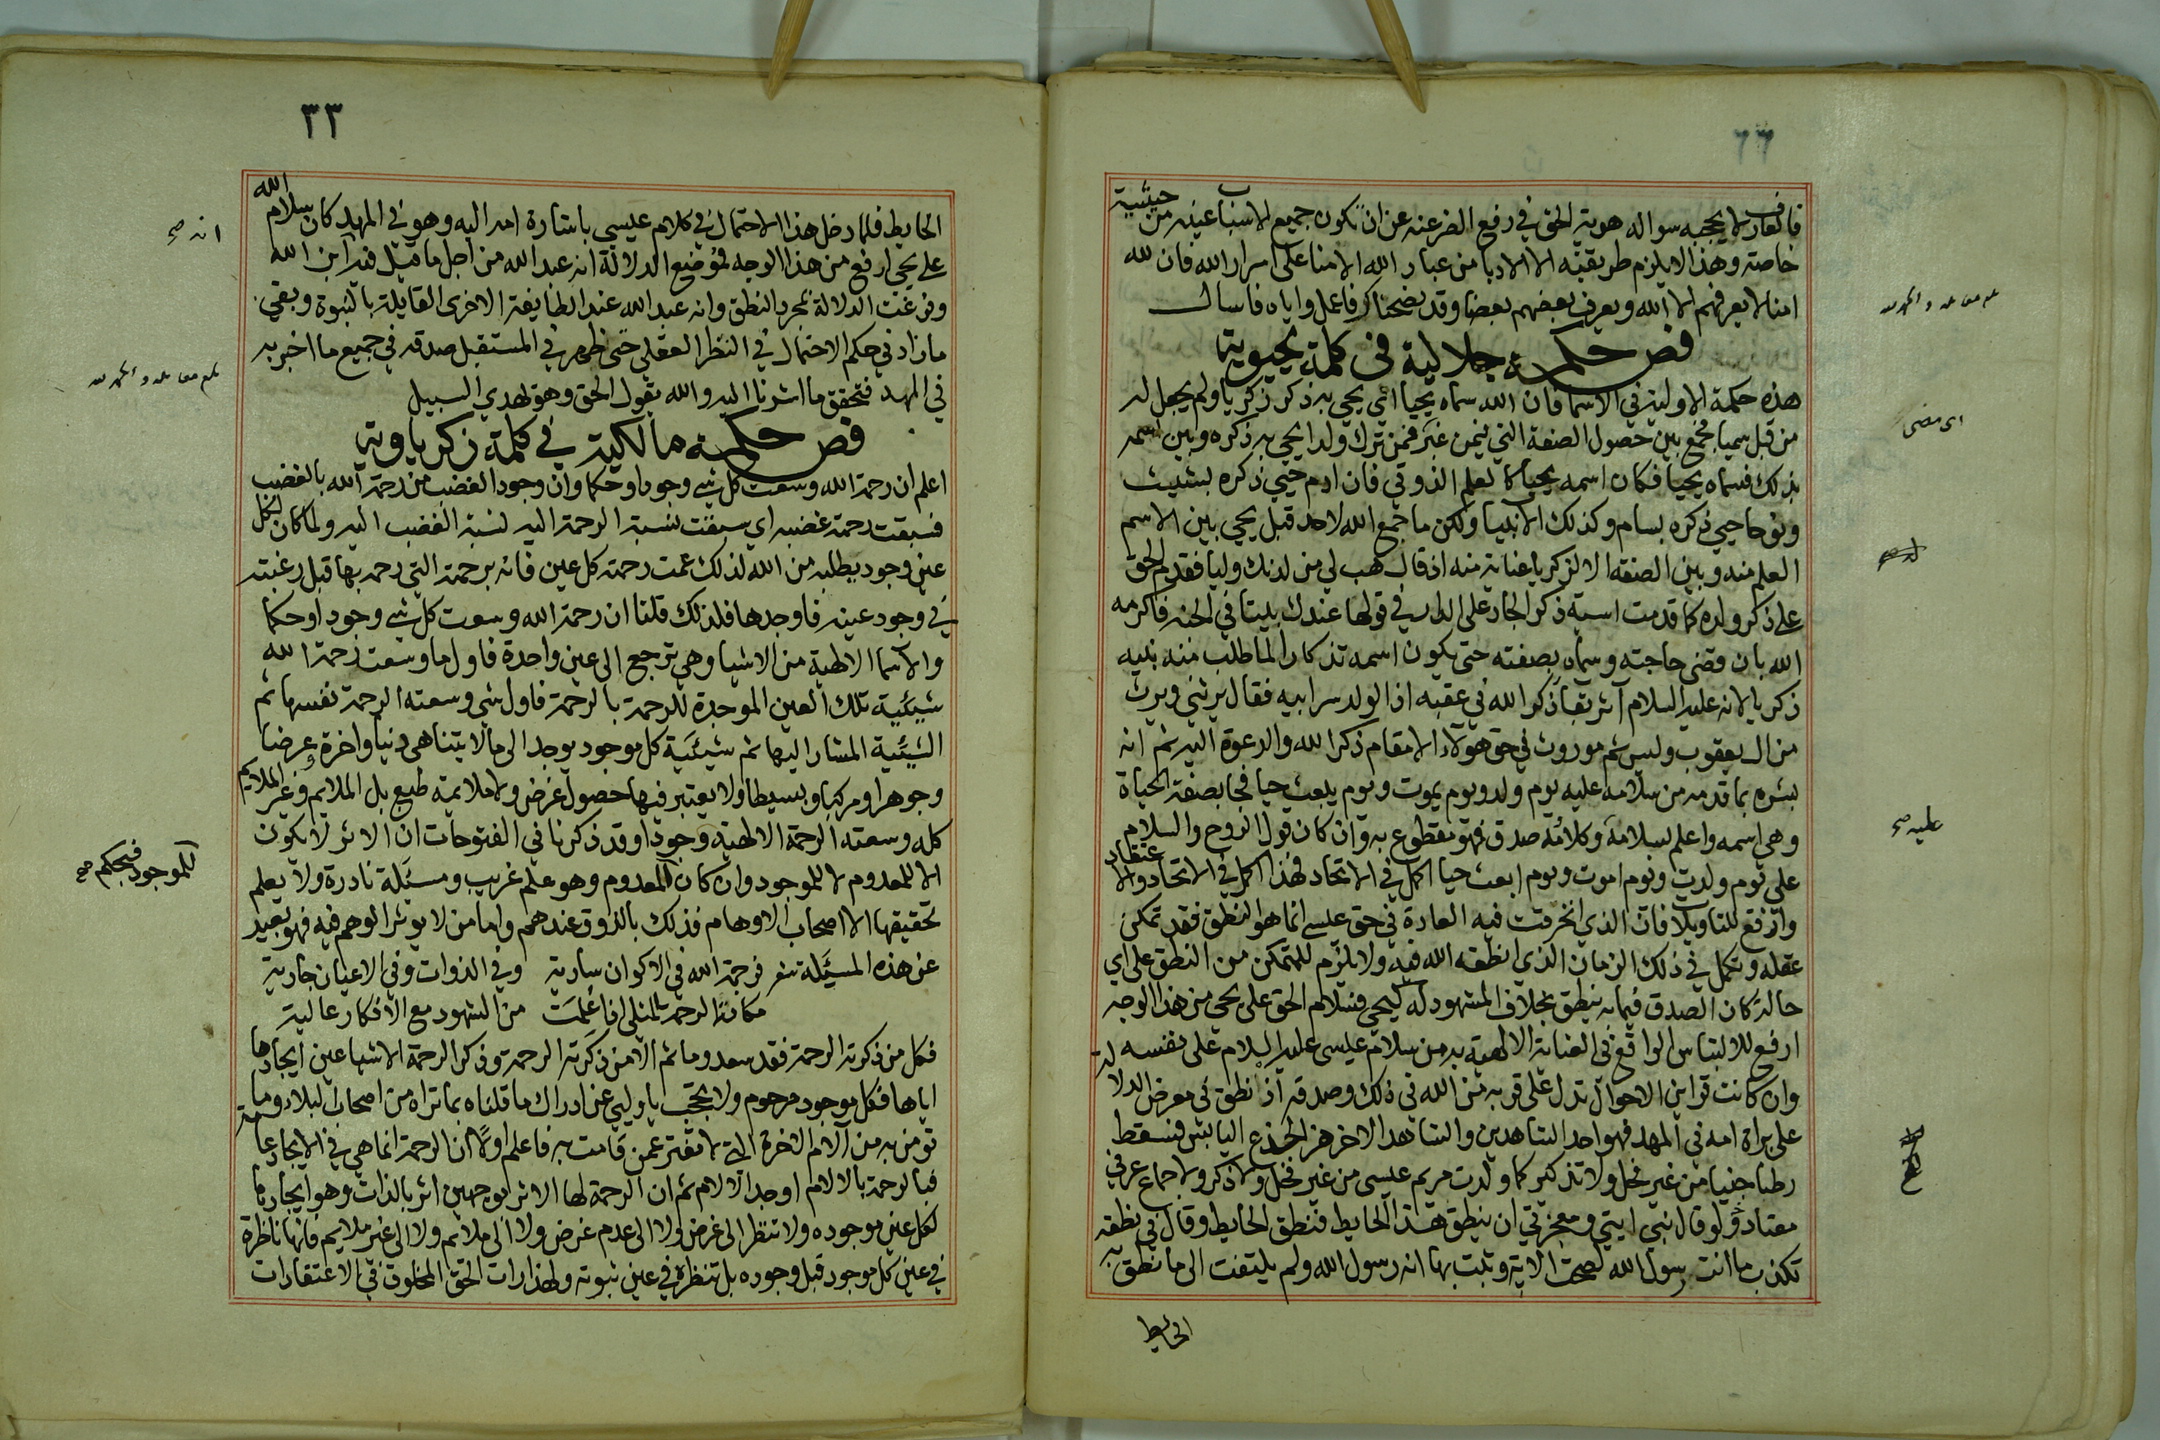 ٦٦
فالعارف لا يحجبه سواله هوية الحق في رفع الضر عنه عن ان تكون جميع الاسباب عينه من حيثية
خاصة وهذا لا يلزم طريقته الا الادبا من عباد الله الامنا على اسرار الله فان لله
امنا لا يعرفهم الا الله ويعرف بعضهم بعضا وقد نصحناك فاعمل واياه فاسال
فص حكمة جلالية في كلمة يحيوية
هذه حكمة الاولية في الاسما فان الله سماه يحيا اي يحيي به ذكر زكريا ولم يجعل له
من قبل سميا فجمع بين حصول الصفة التي فيمن غبر فمن ترك ولدا يحيي به ذكره وبين اسمه
بذلك فسماه يحيا فكان اسمه يحيا كالعلم الذوقي فان ادم حيي ذكره بشيث
ونوحا حيي ذكره بسام وكذلك الانبيا ولكن ما جمع الله لاحد قبل يحيي بين الاسم
العلم منه وبين الصفة الا لزكريا عناية منه اذ قال هب لي من لدنك وليا فقدم الحق
على ذكر ولده كما قدمت اسية ذكر الجار على الدار في قولها عندك بيتا في الجنة فاكرمه
الله بان قضى حاجته وسماه بصفته حتى يكون اسمه تذكارا لما طلب منه نبيه
زكريا لانه عليه السلام آثر بقا ذكر الله في عقبه اذ الولد سر ابيه فقال يرثني ويرث
من ال يعقوب وليس ثم موروث في حق هولاء الا مقام ذكر الله والدعوة اليه ثم انه
بشره بما قدمه من سلامه عليه يوم ولد ويوم يموت ويوم يبعث حيا فجا بصفة الحياة
وهي اسمه واعلم بسلامه وكلامه صدق فهو مقطوع به وان كان قول الروح والسلام
على يوم ولدت ويوم اموت ويوم ابعث حيا اكمل في الاتحاد فهذا اكمل في الاتحاد والاعتقاد
وارفع للتاويلات فان الذي انخرقت فيه العادة في حق عيسى انما هو النطق فقد تمكن
عقله وتكمل في ذلك الزمان الذي انطقه الله فيه ولا يلزم للمتمكن من النطق على اي
حالة كان الصدق فيما به ينطق بخلاف المشهود له كيحيى فسلام الحق على يحيى من هذا الوجه
ارفع للالتباس الواقع في العناية الالهية به من سلام عيسى عليه السلام على نفسه
وان كانت قراين الاحوال تدل على قربه من الله في ذلك وصدقه اذ نطق في معرض الدلالة
على براة امه في المهد فهو احد الشاهدين والشاهد الاخر هز الجذع اليابس فسقط
رطبا جنيا من غير فحل ولا تذكير كما ولدت مريم عيسى من غير فحل ولا ذكر ولا جماع عرفي
معتاد ولو قال نبي ايتي ومعجزتي ان ينطق هذا الحايط فنطق الحايط وقال في نطقه
تكذب ما انت رسول الله لصحت الاية وثبت بها انه رسول الله ولم يلتفت الى ما نطق به
الحايط
اى مضى
عليه صح
٣٣
الحايط فلما دخل هذا الاحتمال في كلام عيسى باشارة امه اليه وهو في المهد كان سلام الله
على يحيى ارفع من هذا الوجه فموضع الدلالة انه عبد الله من اجل ما قيل فيه ابن الله
وفرغت الدلالة بمجرد النطق وانه عبد الله عند الطايفة الاخرى القايلة بالنبوة وبقي
ما زاد في حكم الاحتمال في النظر العقلي حتى ظهر في المستقبل صدقه في جميع ما اخبر به
في المهد فتحقق ما اشرنا اليه والله يقول الحق وهو يهدي السبيل
فص حكمة مالكية في كلمة زكرياوية
اعلم ان رحمة الله وسعت كل شي وجودا وحكما وان وجود الغضب من رحمة الله بالغضب
فسبقت رحمته غضبه اي سبقت نسبة الرحمة اليه نسبة الغضب اليه ولما كان لكل
عين وجود يطلبه من الله لذلك عمت رحمته كل عين فانه برحمته التي رحمه بها قبل رغبته
في وجود عينه فاوجدها فلذلك قلنا ان رحمة الله وسعت كل شي وجودا وحكما
والاسما الالهية من الاشيا وهي ترجع الى عين واحدة فاول ما وسعت رحمة الله
شيئية تلك العين الموجدة للرحمة بالرحمة فاول شي وسعته الرحمة نفسها ثم
الشيئية المشار اليها ثم شيئية كل موجود يوجد الى ما لا يتناهى دنيا واخرة وعرضا
وجوهرا ومركبا وبسيطا ولا يعتبر فيها حصول غرض ولا ملايمة طبع بل الملايم وغير الملايم
كله وسعته الرحمة الالهية وجودا وقد ذكرنا في الفتوحات ان الاثر لا يكون
الا للمعدوم لا للموجود وان كان المعدوم وهو علم غريب ومسئلة نادرة ولا يعلم
تحقيقها الا اصحاب الاوهام فذلك بالذوق عندهم واما من لا يوثر الوهم فيه فهو بعيد
عن هذه المسئلة شعر فرحمة الله في الاكوان سارية وفي الذوات وفي الاعيان جارية
مكانة الرحمة المثلى اذا علمت من الشهود مع الافكار عالية
فكل من ذكرته الرحمة فقد سعد وما ثم الا من ذكرته الرحمة وذكر الرحمة الاشيا عين ايجادها
اياها فكل موجود مرحوم ولا تحجب يا وليي عن ادراك ما قلناه بما تراه من اصحاب البلاء وما
تومن به من آلام الاخرة التي لا تفتر عمن قامت به فاعلم اولا ان الرحمة انما هي في الايجاد عامة
فبالرحمة بالالام اوجد الالام ثم ان الرحمة لها الاثر بوجهين اثر بالذات وهو ايجادها
لكل عين موجوده ولا تنظر الى غرض ولا الى عدم غرض ولا الى ملائم ولا الى غير ملايم فانها ناظرة
في عين كل موجود قبل وجوده بل تنظره في عين ثبوته ولهذا رات الحق المخلوق في الاعتقادات
انه صح
للموجود فبحكم صح